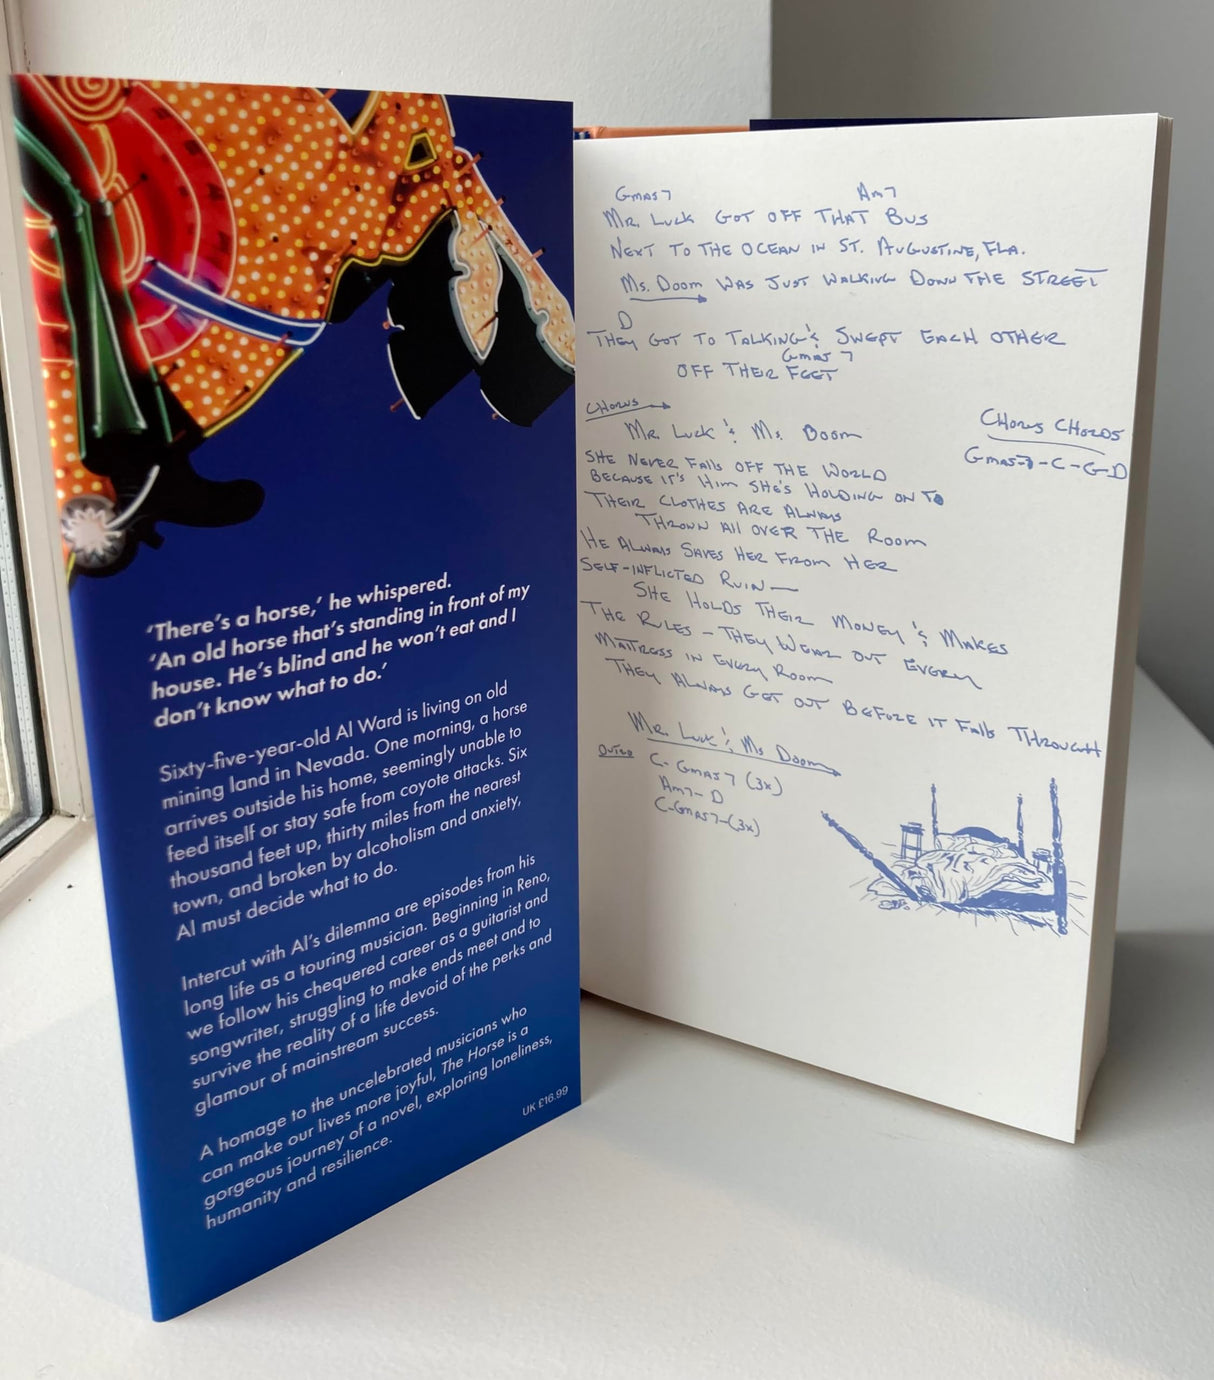 'There's a horse,' he whispered.
'An old horse that's standing in front of my
house. He's blind and he won't eat and I
don't know what to do.'
Sixty-five-year-old Al Ward is living on old
mining land in Nevada. One morning, a horse
arrives outside his home, seemingly unable to
feed itself or stay safe from coyote attacks. Six
thousand feet up, thirty miles from the nearest
town, and broken by alcoholism and anxiety,
Al must decide what to do.
Intercut with Al's dilemma are episodes from his
long life as a touring musician. Beginning in Reno,
we follow his chequered career as a guitarist and
songwriter, struggling to make ends meet and to
survive the reality of a life devoid of the perks and
glamour of mainstream success.
A homage to the uncelebrated musicians who
can make our lives more joyful, The Horse is a
gorgeous journey of a novel, exploring loneliness,
humanity and resilience.
UK £16.99
Gmaj7 Am7
Mr. Luck got off that bus
Next to the ocean in St. Augustine, Fla.
Ms. Doom was just walking down the street
D
They got to talking & swept each other
Gmaj7
off their feet
Chorus
Mr. Luck & Ms. Doom
She never falls off the world
because it's him she's holding on to
Their clothes are always
thrown all over the room
He always saves her from her
self-inflicted ruin—
She holds their money & makes
the rules – they wear out every
mattress in every room
They always get out before it falls through
Mr. Luck & Ms Doom
Chorus Chords
Gmaj7-C-G-D
Outro C-Gmaj7 (3x)
Am7-D
C-Gmaj7-(3x)